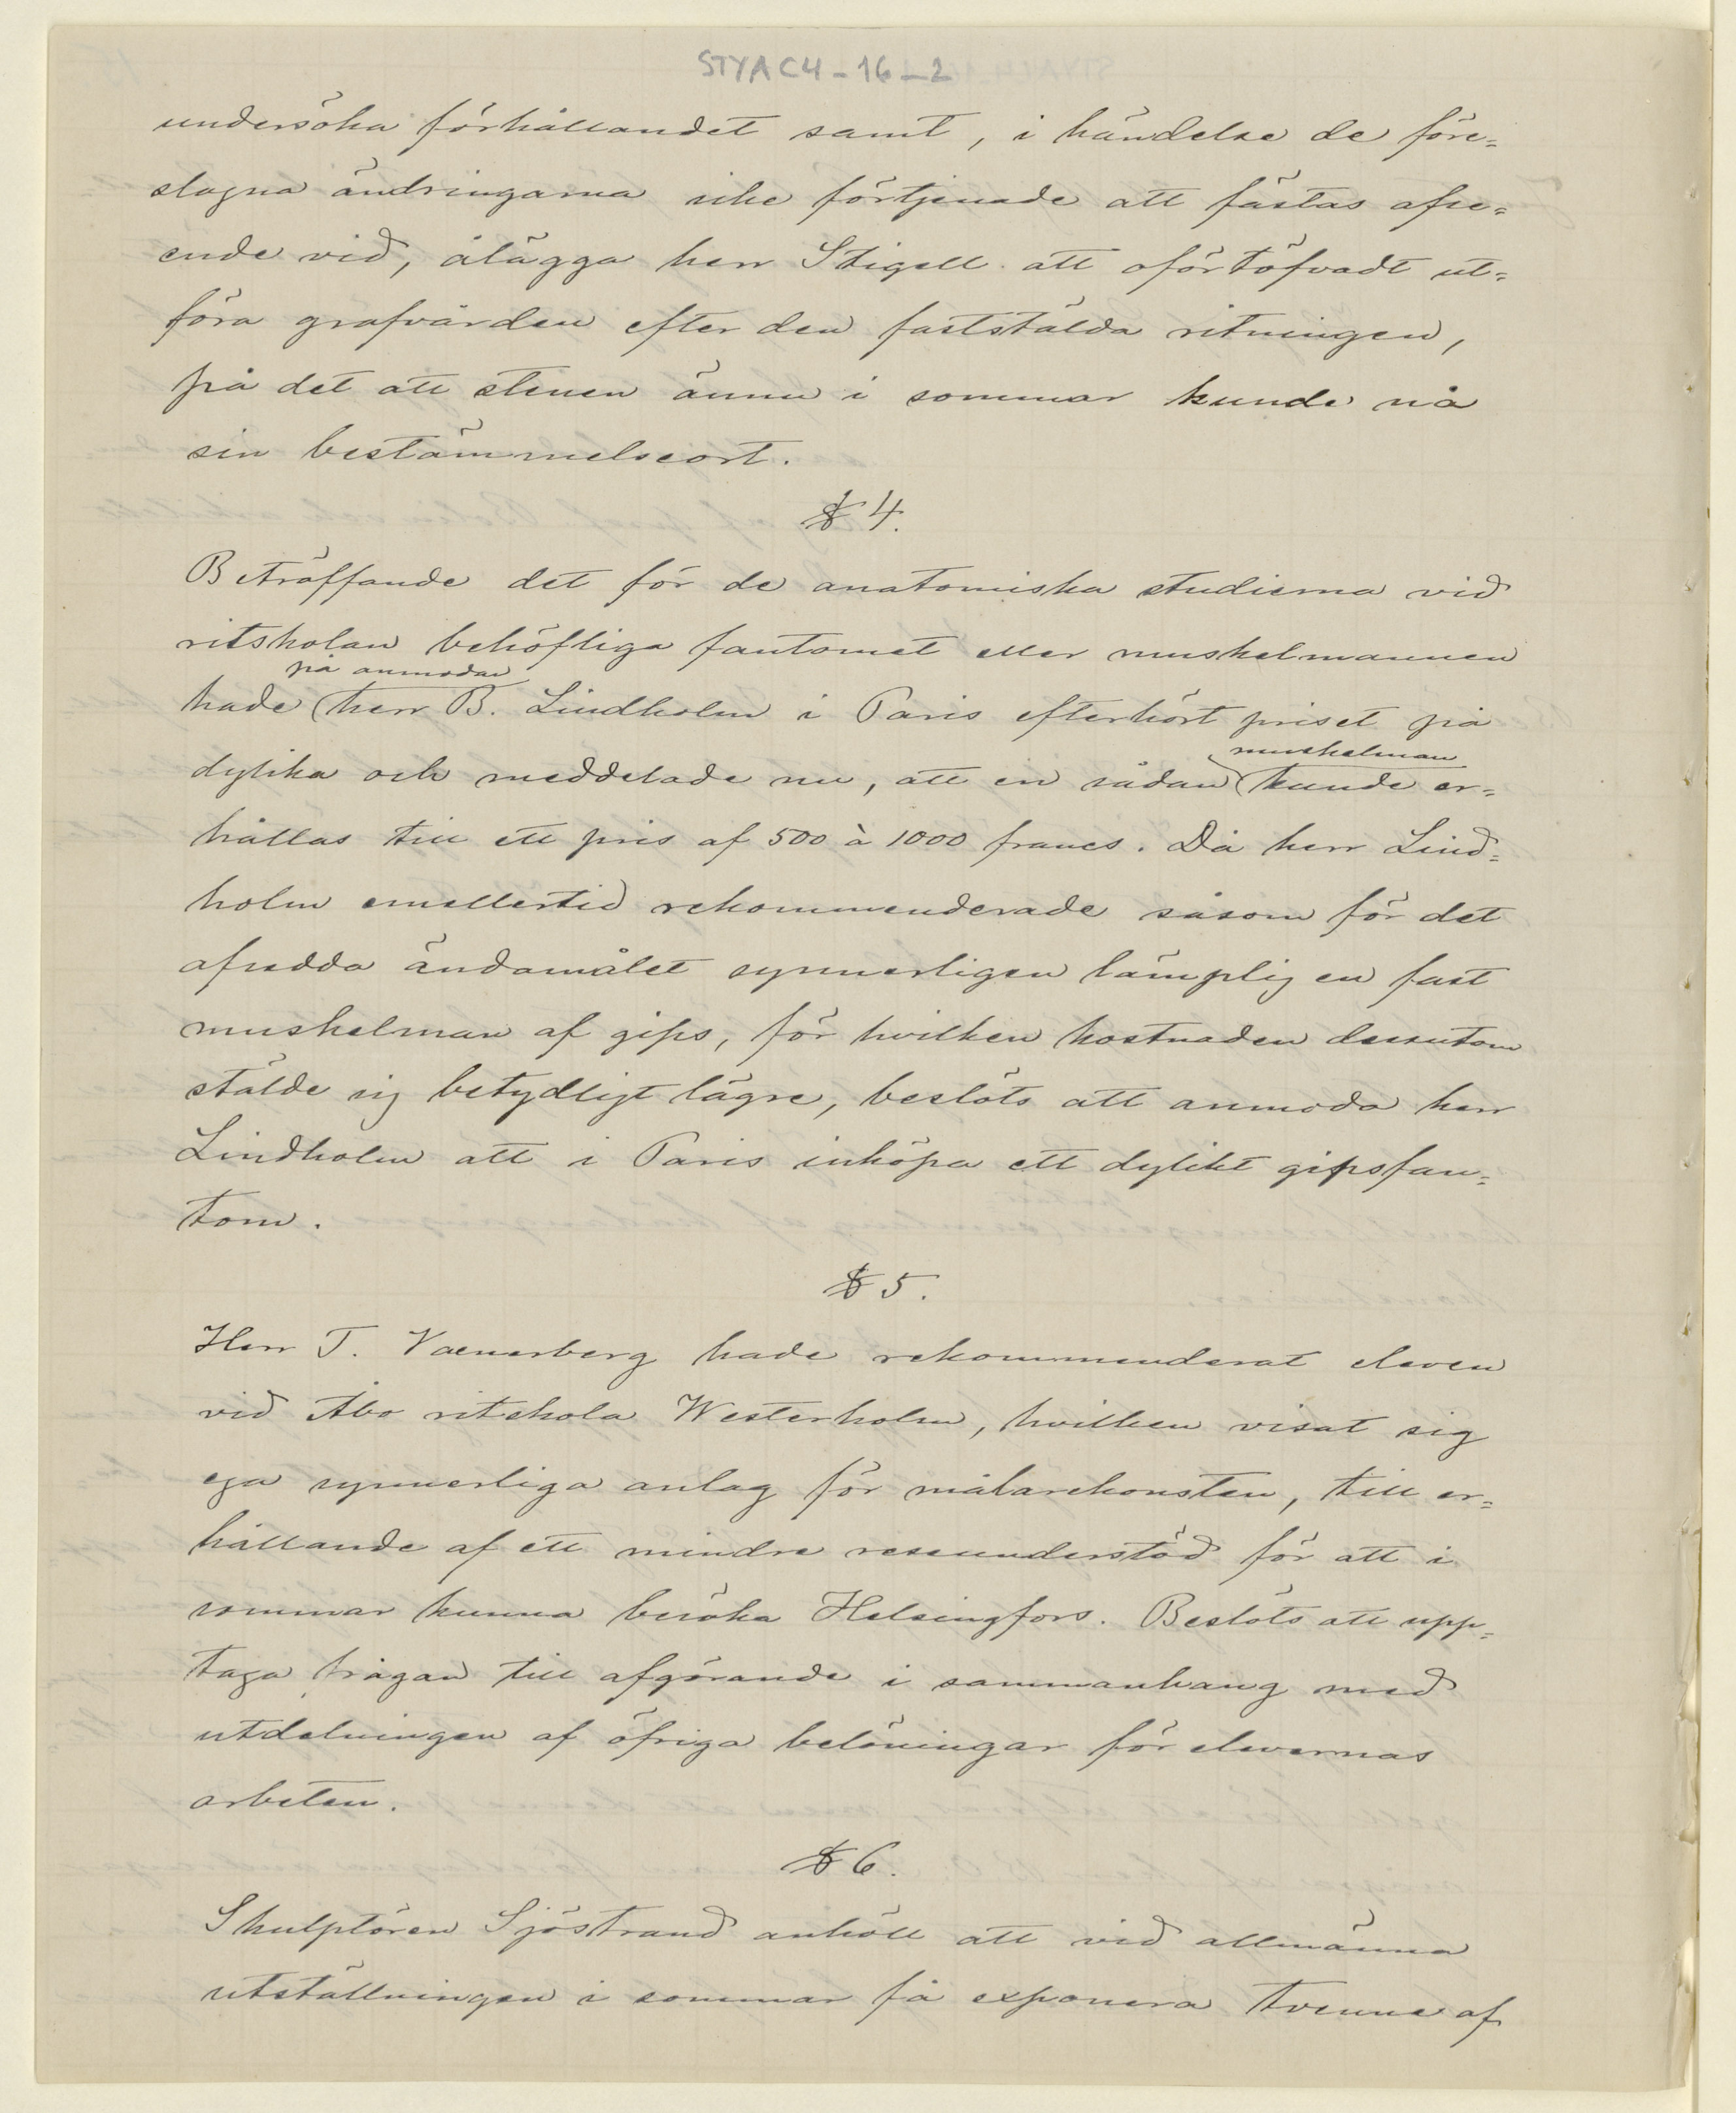 STYA C4-16-2
undersöka förhållandet samt, i händelse de före=
slagna ändringarna icke förtjenade att fästas afse=
ende vid, ålägga herr Stigell att oförtöfvadt ut=
föra grafvården efter den fastställda ritningen,
på det att stenen ännu i sommar kunde nå
sin bestämmelseort.
§ 4.
Beträffande det för de anatomiska studierna vid
ritskolan behöfliga fantomet eller muskelmannen
på anmodan
hade herr B. Lindholm i Paris efterhört priset på
muskelman
dylika och meddelade nu, att en sådan kunde er=
hållas till ett pris af 500 à 1000 francs. Då herr Lind=
holm emellertid rekommenderade såsom för det
afsedda ändamålet synnerligen lämplig en fast
muskelman af gips, för hvilken kostnaden dessutom
stälde sig betydligt lägre, beslöts att anmoda herr
Lindholm att i Paris inköpa ett dylikt gipsfan=
tom.
§ 5.
Herr T. Waenerberg hade rekommenderat eleven
vid Åbo ritskola Westerholm, hvilken visat sig
ega synnerliga anlag för målarekonsten, till er=
hållande af ett mindre reseunderstöd för att i
sommar kunna besöka Helsingfors. Beslöts att upp=
taga frågan till afgörande i sammanhang med
utdelningen af öfriga belöningar för elevernas
arbeten.
§ 6.
Skulptören Sjöstrand anhöll att vid allmänna
utställningen i sommar få exponera tvenne af